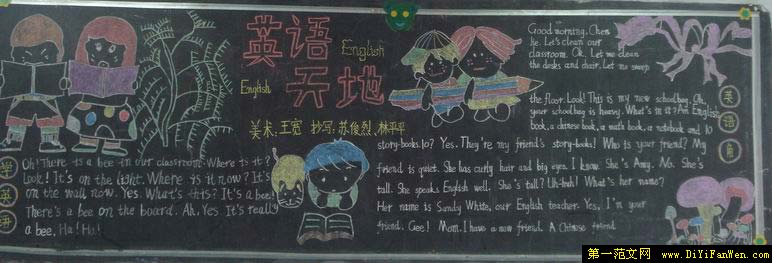 英语
天地
English
English
美术:王宽 抄写:苏俊烈、林平平
学
英
语
Oh! There is a bee in our classroom. Where is it?
Look! It's on the light. Where is it now? It's
on the wall now. Yes. What's this? It's a bee!
There's a bee on the board. Ah, Yes. It's really
a bee. Ha! Ha!
Good morning. Chen
Jie. Let's clean our
classroom. OK. Let me clean
the desks and chair. Let me sweep
the floor. Look! This is my new schoolbag. Oh,
your schoolbag is heavy. What's in it? An English
book, a chinese book, a math book, a notebook and 10
story-books. 10? Yes. They're my friend's story-books! Who is your friend? My
friend is quiet. She has curly hair and big eyes. I know. She's Amy. No. She's
tall. She speaks English well. She's tall? Uh-huh! What's her name?
Her name is Sandy White, our English teacher. Yes, I'm your
friend. Gee! Mom. I have a new friend. A Chinese friend
英
语
角
第一范文网 www.DiYiFanWen.com